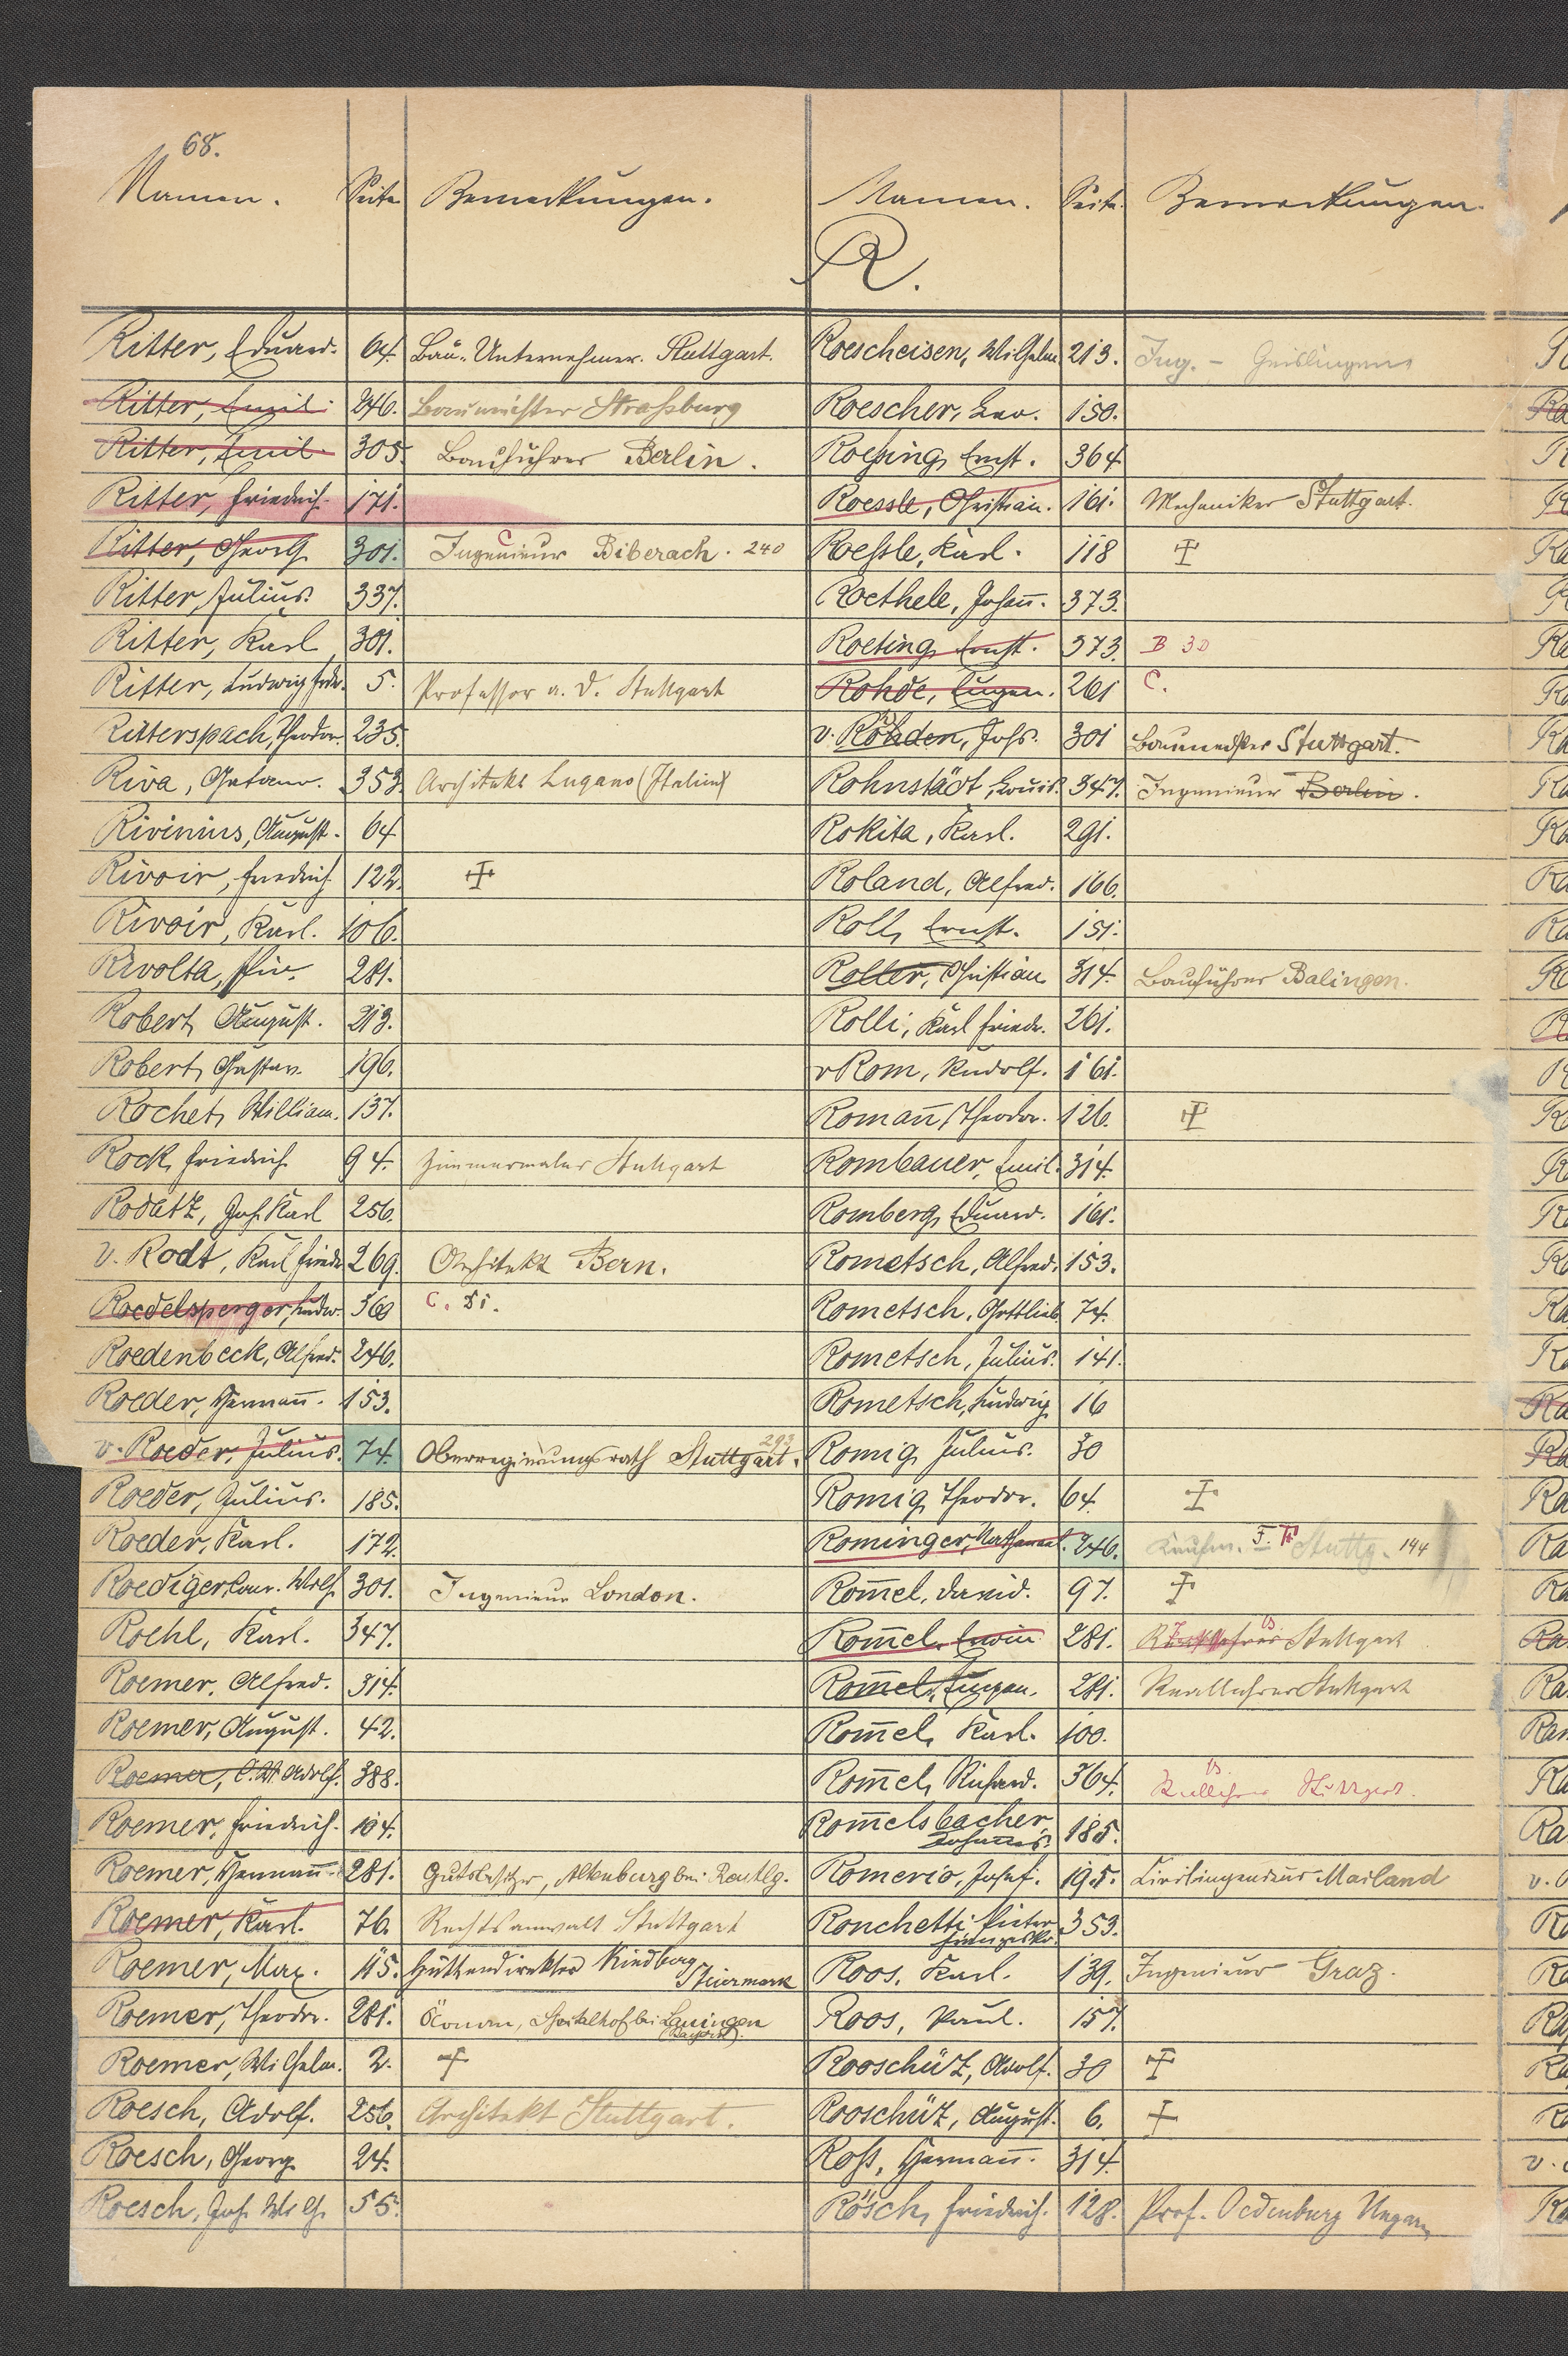 68.
Namen. Seite Bemerkungen.
Ritter, Eduard. 64. Bau-Unternehmer. Stuttgart.
Ritter, Emil. 246. Baumeister Straßburg
Ritter, Emil. 305. Bauführer Berlin.
Ritter, Friedrich. 171.
Ritter, Georg 301. C Ingenieur Biberach. 240
Ritter, Julius. 337.
Ritter, Karl 301.
Ritter, Ludwig Fr. 5. Professor a. D. Stuttgart
Ritterspach, Theodor. 235.
Riva, Gatano. 353. Architekt Lugano (Italien)
Rivinius, August. 64
Rivoir, Friedrich 122. ☩
Rivoir, Karl. 106.
Rivolta, Piu. 281.
Robert, August. 213.
Robert, Gustav. 196.
Rochet, William. 137.
Rock, Friedrich 94. Zimmermaler Stuttgart
Rodatz, Joh. Karl 256.
v. Rodt, Karl Friedr. 269. Architekt Bern.
Roedelsperger, Ludw. 360 C.
Roedenbeck, Alfred. 246.
Roeder, Hermann̄. 153.
v. Roeder, Julius. 74. Oberregierungsrath Stuttgart. 293
Roeder, Julius. 185.
Roeder, Karl. 172.
Roediger, Conr. Wolf 301. Ingenieur London.
Roehl, Karl. 347.
Roemer, Alfred. 314.
Roemer, August. 42.
Roemer, C. W. Adolf. 388.
Roemer, Friedrich. 104.
Roemer, Hermann̄ 281. Gutsbesitzer, Altenburg bei Reutlg.
Roemer, Karl. 76. Rechtsanwalt Stuttgart
Roemer, Max. 115. Hüttendirektor Kindberg
Steiermark
Roemer, Theodor. 281. Öconom, Spitalhof bei Lauingen
(Bayern).
Roemer, Wilhelm. 2. ☩
Roesch, Adolf. 256. Architekt Stuttgart.
Roesch, Georg 24.
Roesch, Joh. Wilh. 55.
Namen. Seite. Bemerkungen.
R.
Roescheisen, Wilhelm 213. Ing. - Geislingen
Roescher, Leo. 150.
Roeßing, Ernst. 364
Roessle, Christian. 161. Mechaniker Stuttgart.
Roeßle, Karl. 118 ☩
Roethele, Johan̄. 373.
Roeting, Ernst. 373. B 30
Rohde, Eugen. 261 C.
v. Rohden, Johs. 301 Baumeister Stuttgart.
Rohnstädt, Louis. 347. Ingenieur Berlin.
Rokita, Karl. 291.
Roland, Alfred. 166.
Roll, Ernst. 151.
Roller, Christian 314. Bauführer Balingen.
Rolli, Karl Friedr. 261.
v Rom, Rudolf. 161.
Roman̄, Theodor. 126. ☩
Rombauer, Emil. 314.
Romberg, Eduard. 161.
Rometsch, Alfred. 153.
Rometsch, Gottlieb 74.
Rometsch, Julius. 141.
Rometsch, Ludwig 16
Romig, Julius. 30
Romig, Theodor. 64. ☩
Rominger, Nathanael. 246. Kaufm. Stuttg. 194
Rom̄el, David. 97. ☩
Rom̄el, Erwin 281. Stuttgart
Rom̄el, Eugen. 281. Reallehrer Stuttgart
Rom̄el, Karl. 100.
Rom̄el, Richard. 364. Reallehrer Stuttgart.
Rom̄elsbacher,
Johannes. 185.
Romerio, Josef. 195. Civilingenieur Mailand
Ronchetti Pietro
Franzesko. 353.
Roos, Karl. 139. Ingenieur Graz.
Roos, Paul. 157.
Rooschüz, Adolf. 30 ☩
Rooschüz, August. 6. ☩
Roß, Herman̄. 314.
Rösch, Friedrich. 128. Prof. Oedenburg Ungarn